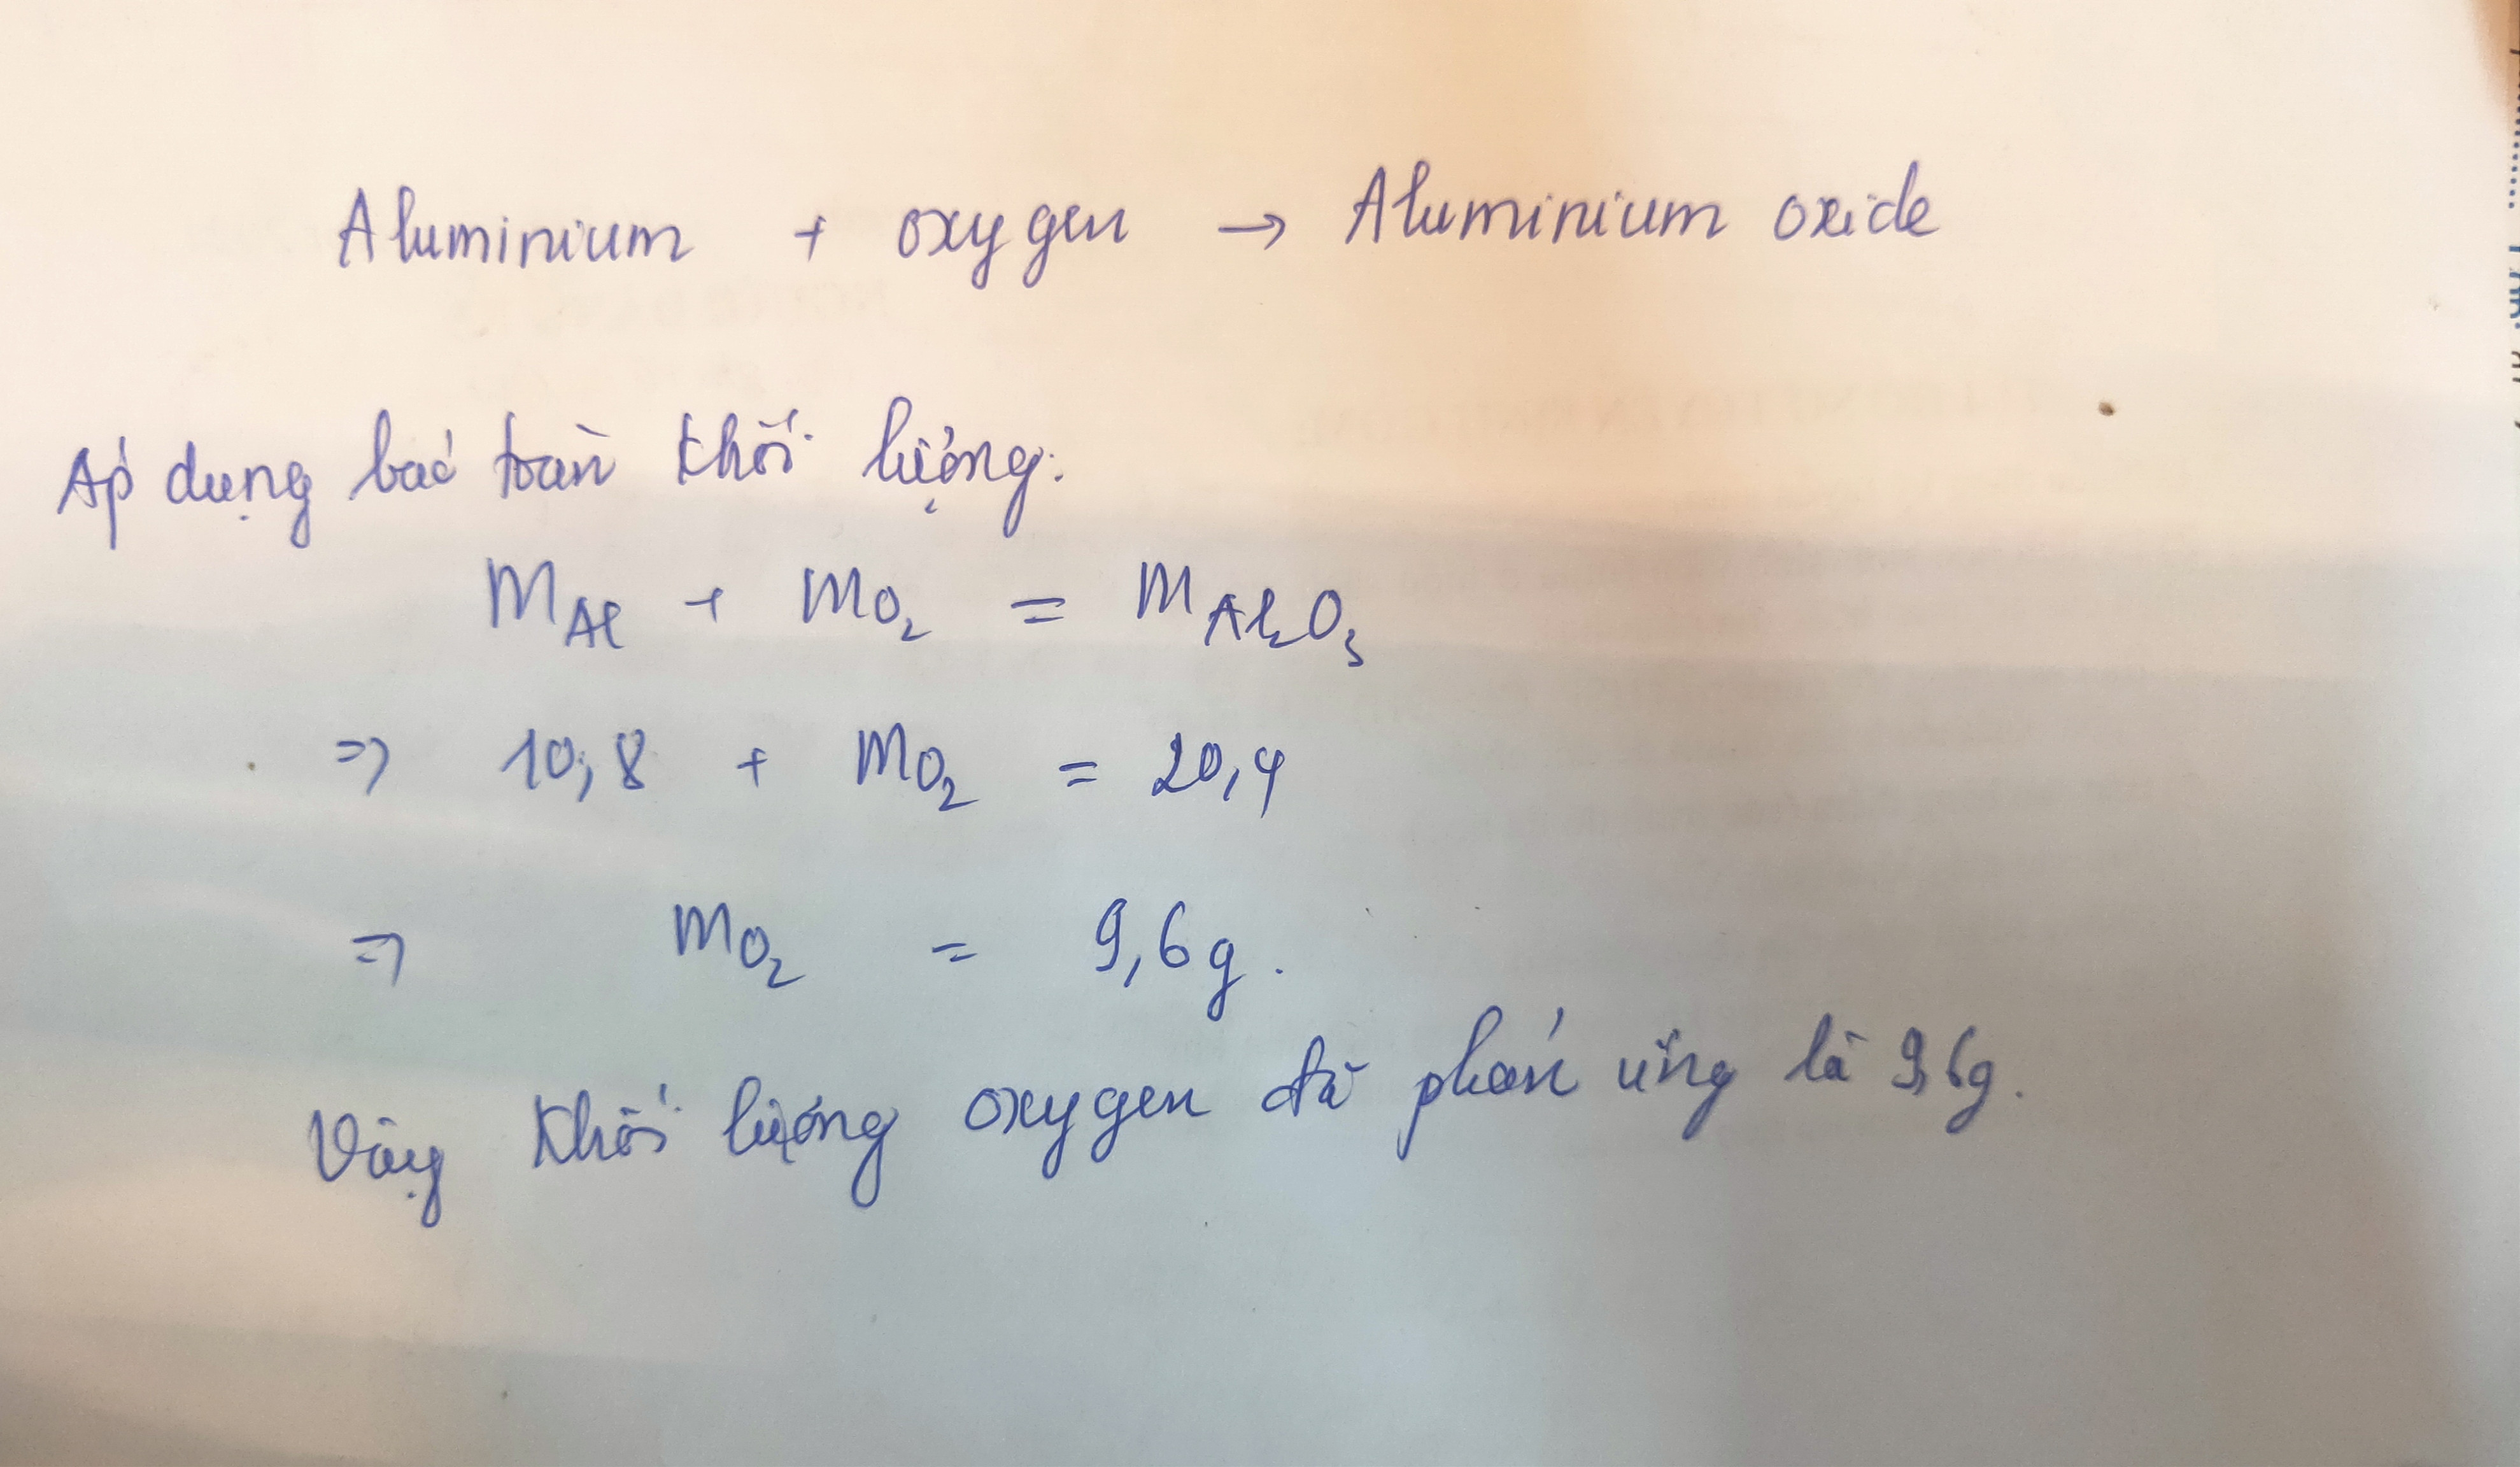 Aluminium + oxygen → Aluminium oxide
Áp dụng bảo toàn khối lượng:
m_Al + m_O₂ = m_Al₂O₃
=> 10,8 + m_O₂ = 20,4
=> m_O₂ = 9,6g.
Vậy khối lượng oxygen đã phản ứng là 9,6g.